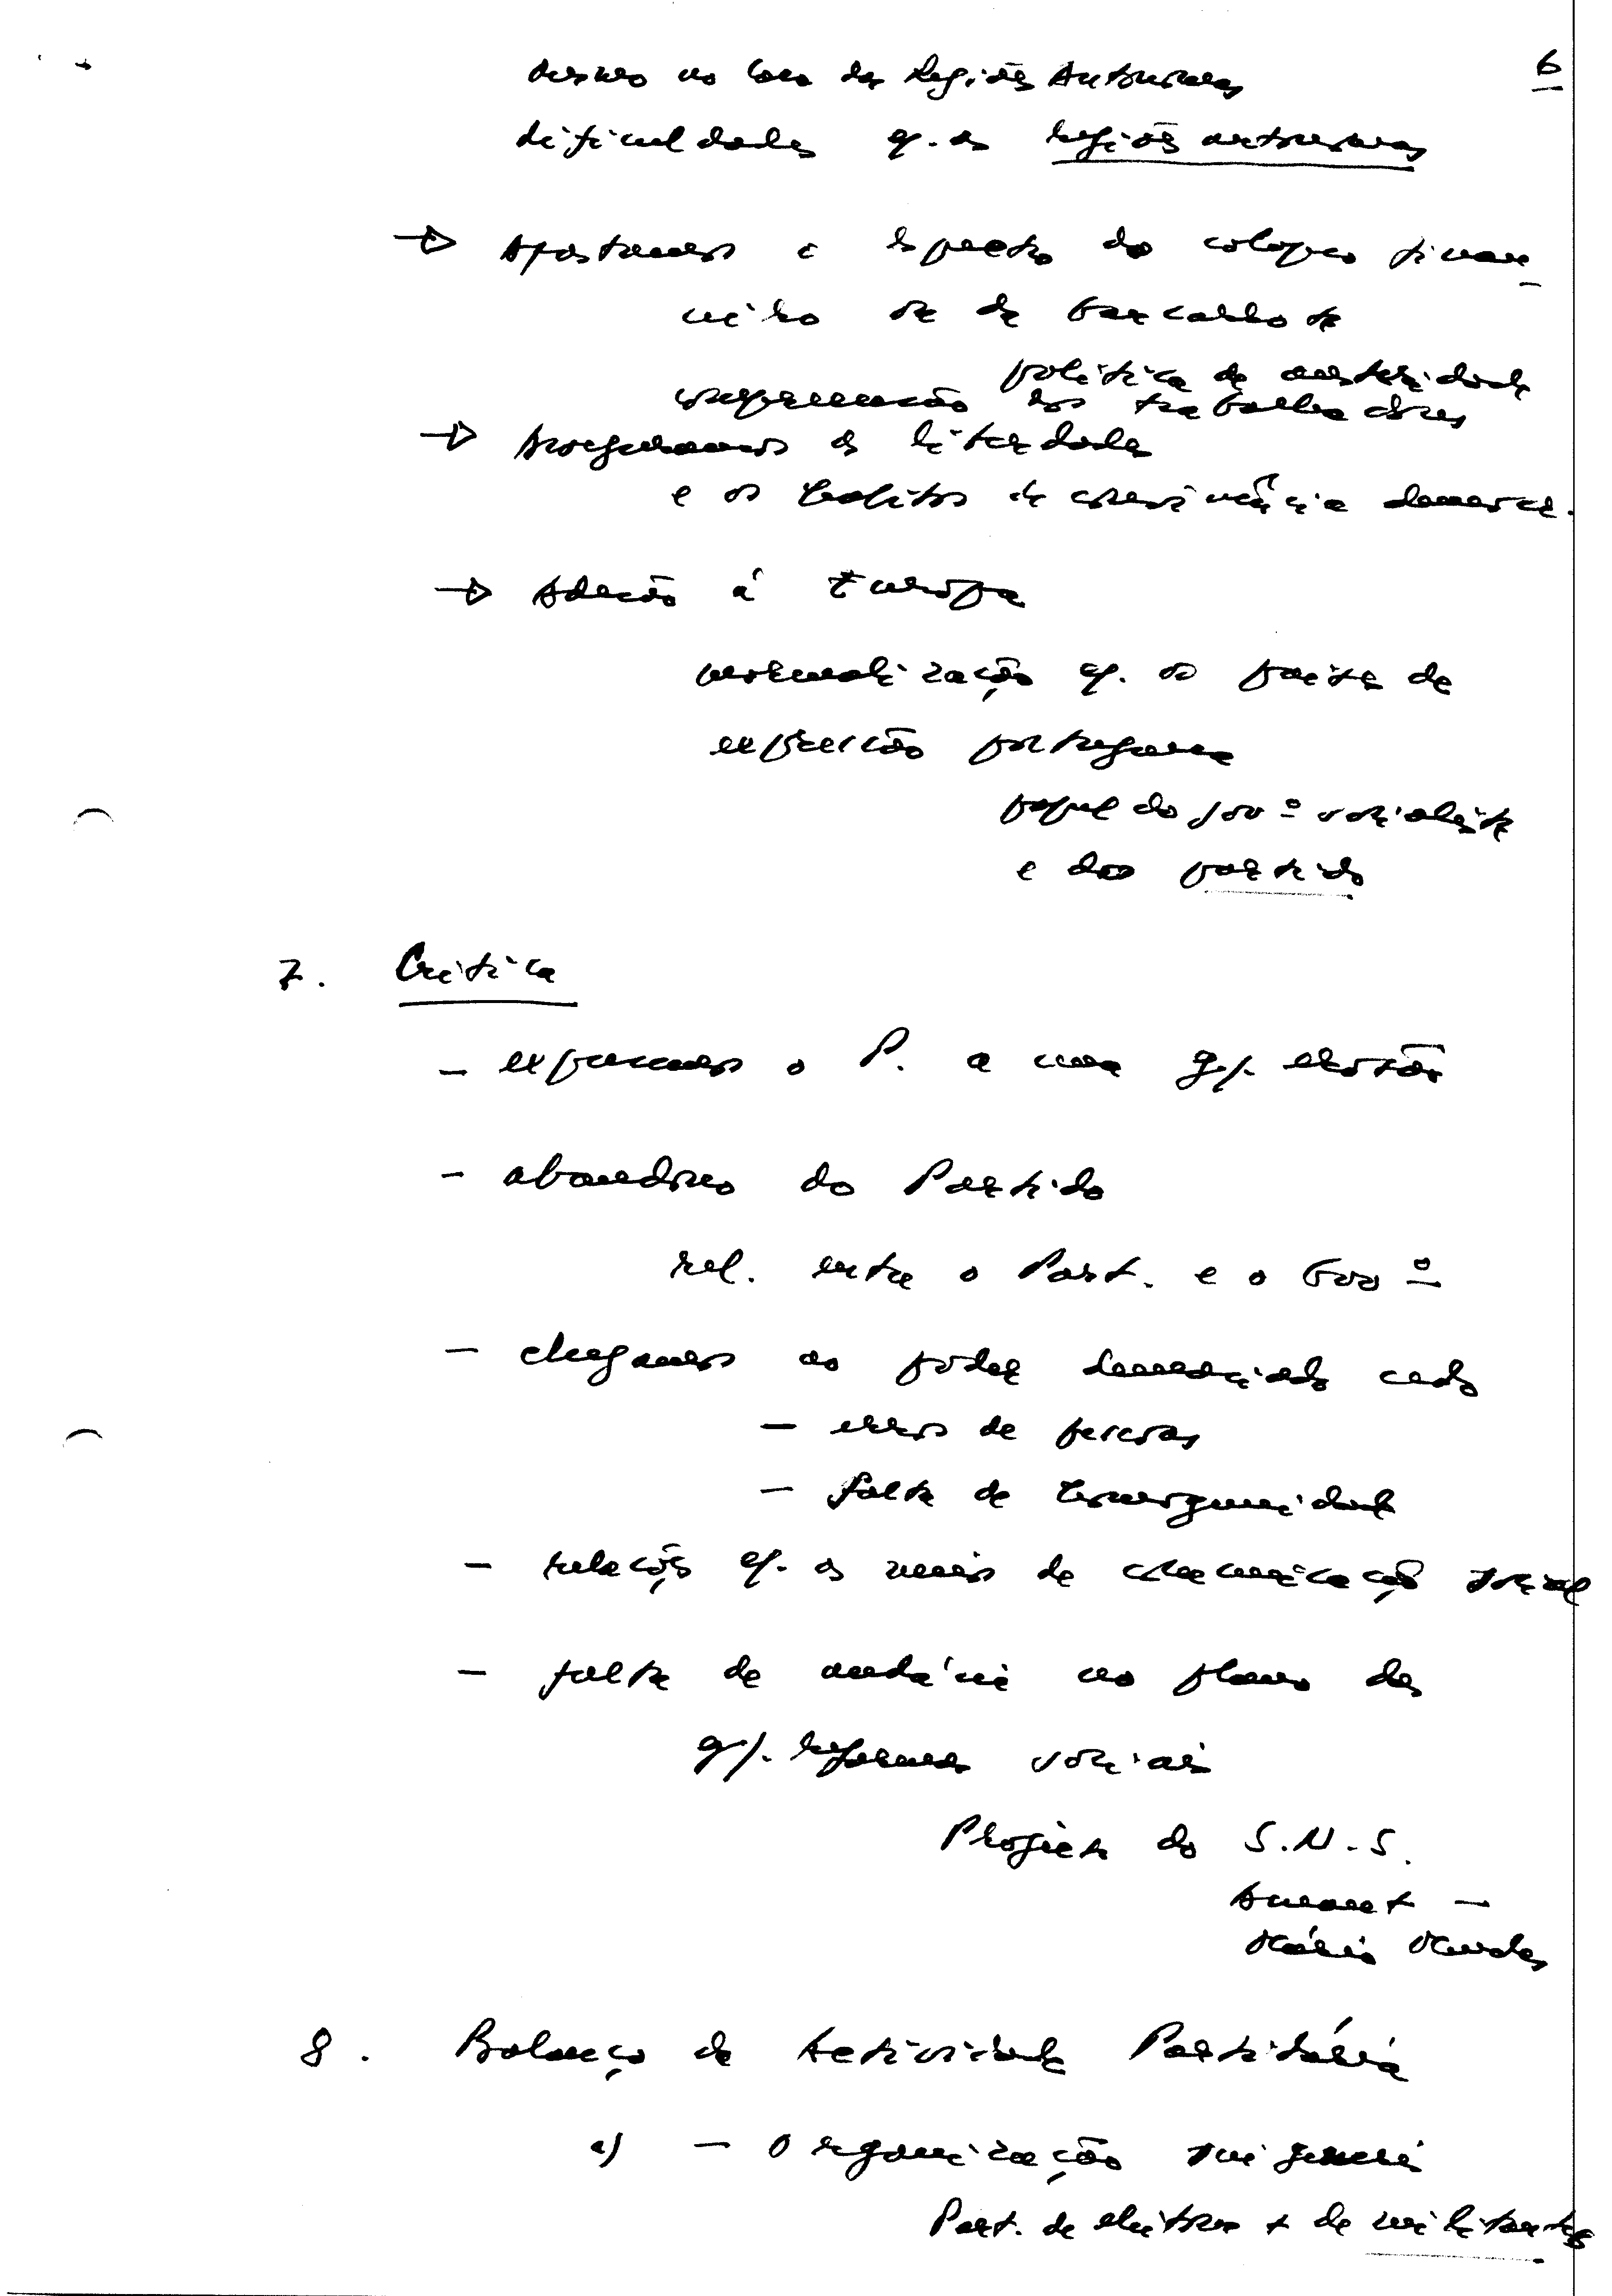 6
mesmo no caso das Regiões Autónomas
dificuldades q. as regiões autónomas
→ Afastamos o espectro do colapso finan-
ceiro ou da bancarrota
política de austeridade
compreensão dos trabalhadores
→ Asseguramos as liberdades
e os hábitos de convivência democrá.
→ Adesão á Europa
normalização c/. os países de
expressão portuguesa
papel do gov.º socialista
e do partido
7. Crítica
- expusemos o P. a uma g/. erosão
- abandono do Partido
rel. entre o Part. e o Gov.º
- chegamos ao poder demasiado cedo
- erros de pessoas
- falta de homogeneidade
- relações c/. os meios de comunicação social
- falta de audácia no plano das
g/. reformas sociais
Projecto do S.N.S.
Arnaut -
Mário Mendes
8. Balanço da Actividade Partidária
a) - Organização sui generis
Part. de eleitores + de militantes